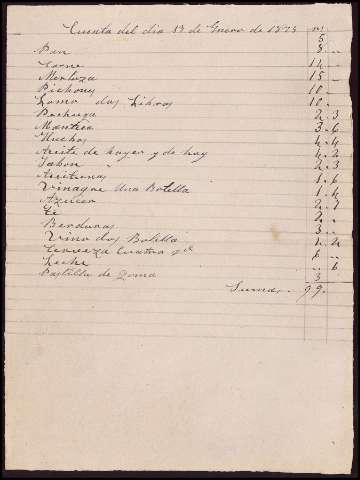 Cuenta del dia 19 de Enero de 1873
Pan 8 ..
Carne 14 ..
Merluza 15 ..
Pichones 10 ..
Lomo dos Libras 10 ..
2 3
Manteca 3 6
4 4
Aceite de hayer y de hoy 4 2
Jabon 2 3
Aceitunas 1 6
Vinagre Una Botella 1 4
Azucar 2
Te 2 ..
Berduras 3 ..
Vino dos Botella 1 2
Cerveza Cuatro 8 ..
Leche .. 6
Pastilla de Goma 3
Suma. 99.